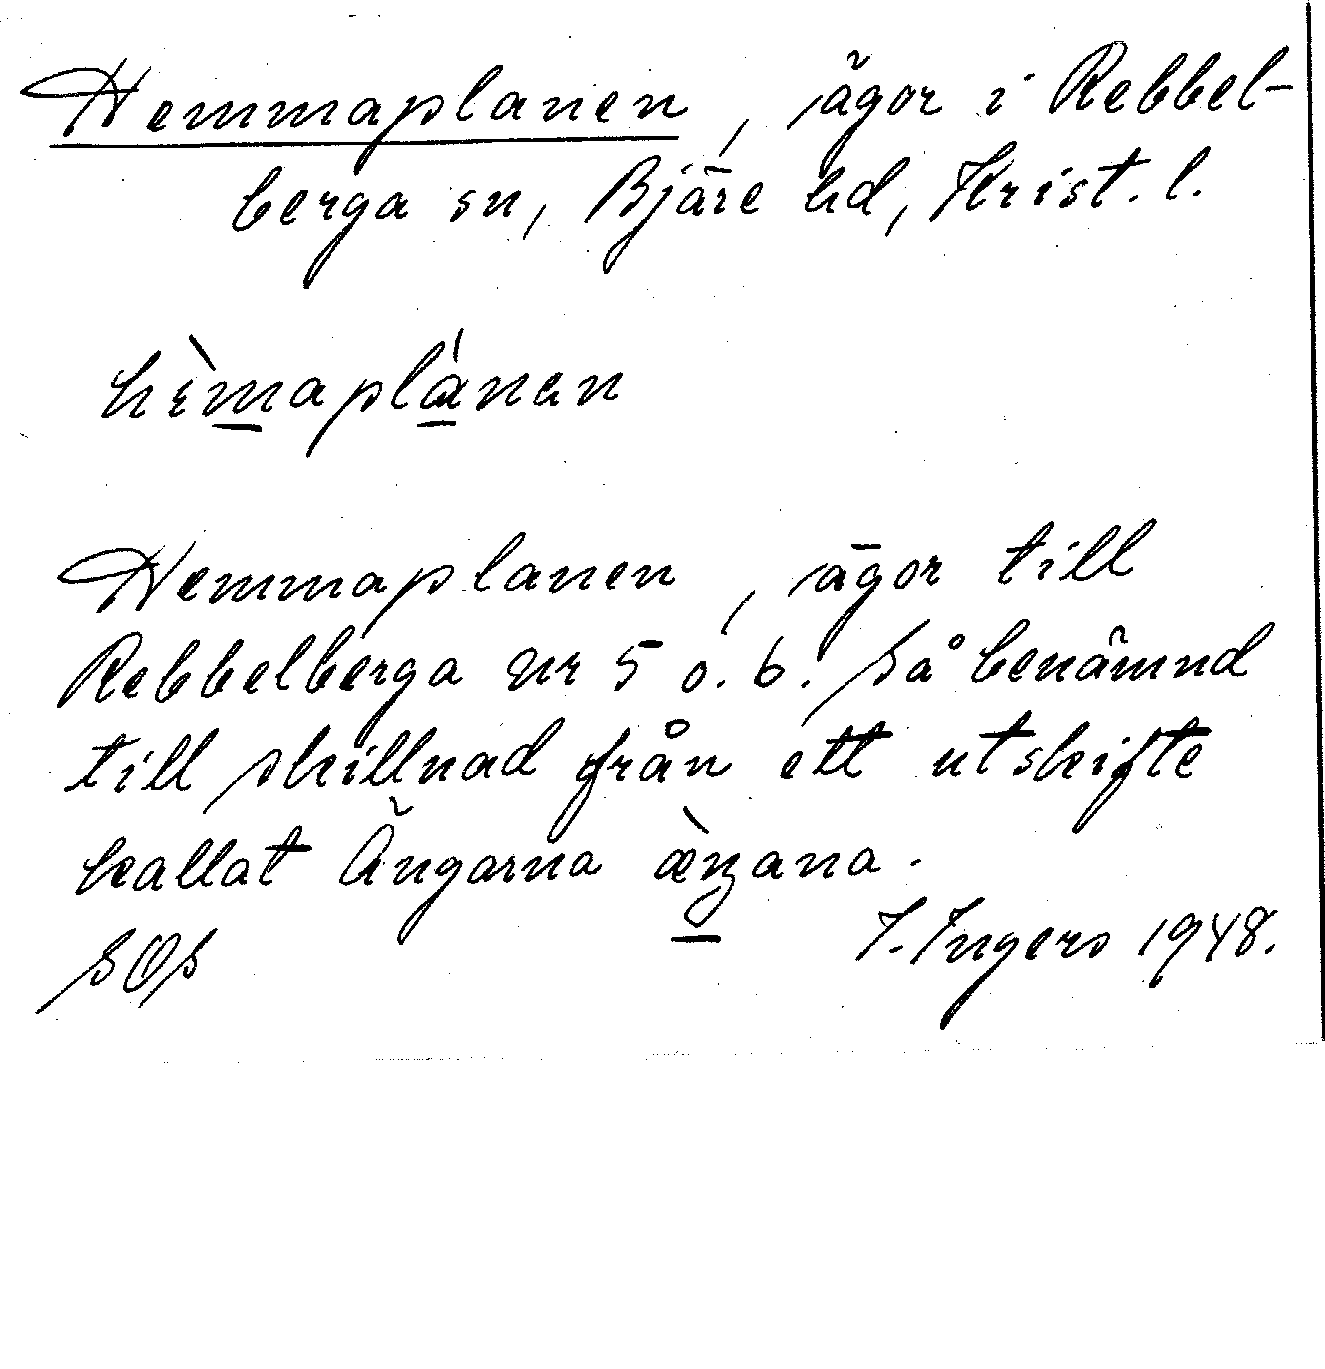 Hemmaplanen, ägor i Rebbel-
berga sn, Bjäre hd, Krist. l.
hèmaplánen
Hemmaplanen, ägor till
Rebbelberga Nr 5 o. 6. Så benämnd
till skillnad från ett utskifte
kallat Ängarna æ̀ŋana.
SOS I. Ingers 1948.